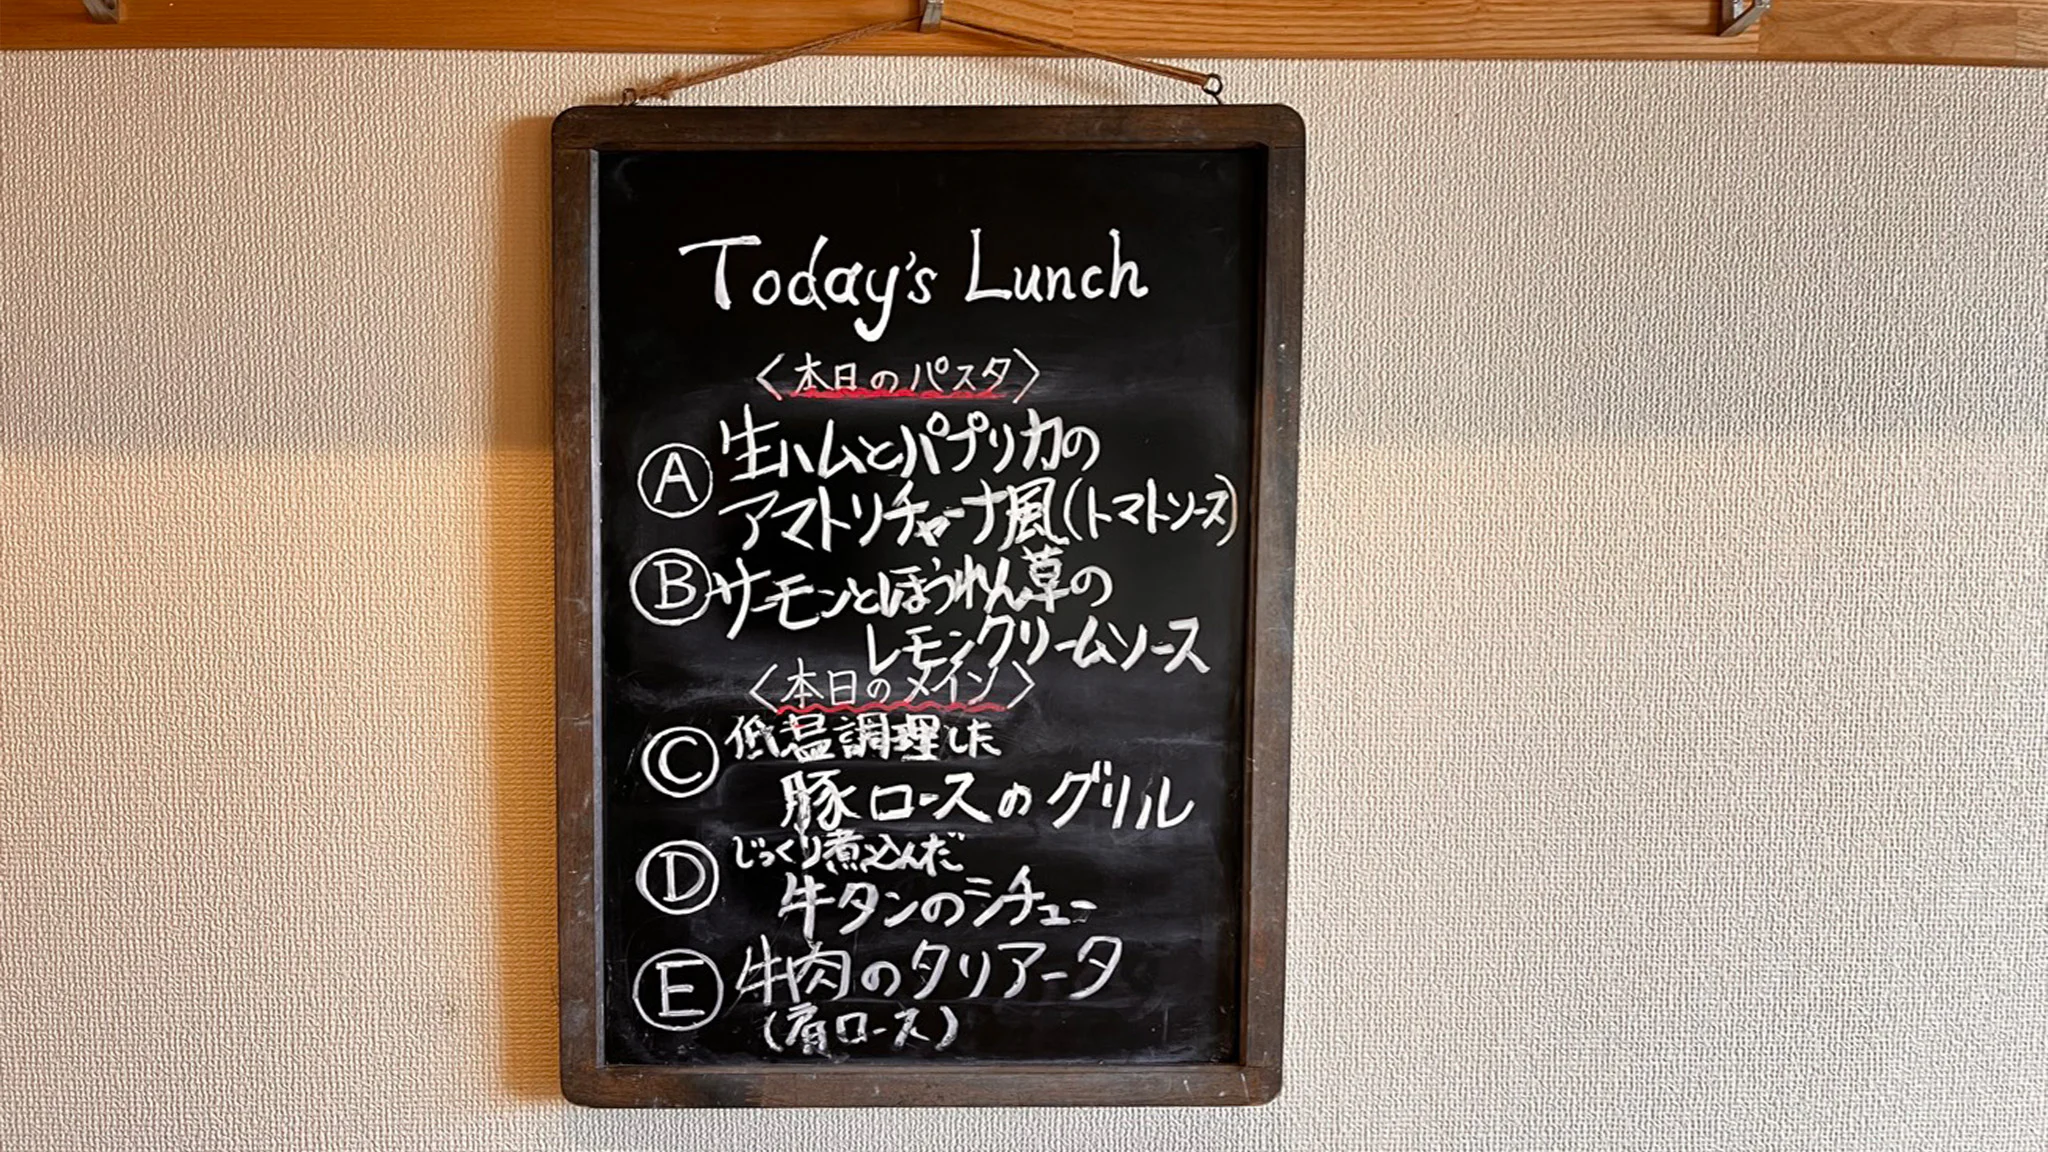 Today's Lunch
〈本日のパスタ〉
Ⓐ 生ハムとパプリカの
アマトリチャーナ風(トマトソース)
Ⓑ サーモンとほうれん草の
レモンクリームソース
〈本日のメイン〉
Ⓒ 低温調理した
豚ロースのグリル
Ⓓ じっくり煮込んだ
牛タンのシチュー
Ⓔ 牛肉のタリアータ
(肩ロース)